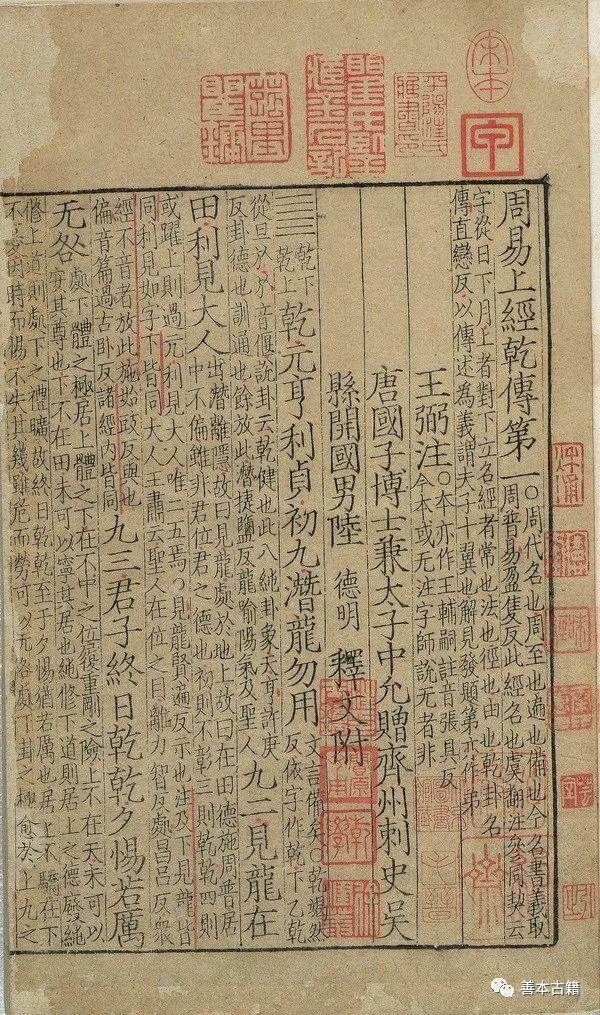 宋本
周易上經乾傳第一
○周代名也周至也遍也備也今名書義取
周普易盈隻反此經名也虞翻注參同契云
字從日下月上者對下立名經者常也法也徑也由也乾卦名
傳直戀反以傳述為義謂夫子十翼也解見發題第亦作弟
王弼注
○本亦作王輔嗣註音張具反
今本或无注字師說无者非
唐國子博士兼太子中允贈齊州刺史吳
縣開國男陸 德明 釋文附
䷀
乾下
乾上
乾元亨利貞初九潛龍勿用
文言備矣○乾竭然
反依字作乾下乙乾
從旦㫃㫃音偃說卦云乾健也此八純卦象天亨許庚
反卦德也訓通也餘放此潛捷鹽反龍喻陽氣及聖人
九二見龍在
田利見大人
出潛離隱故曰見龍處於地上故曰在田德施周普居
中不偏雖非君位君之德也初則不彰三則乾乾四則
或躍上則過亢利見大人唯二五焉○見龍賢遍反示也注及下見龍皆
同利見如字下皆同大人王肅云聖人在位之目離力智反處昌呂反眾
經不音者放此施始豉反與也
偏音篇過古卧反諸經內皆同
九三君子終日乾乾夕惕若厲
无咎
處下體之極居上體之下在不中之位履重剛之險上不在天未可以
安其尊也下不在田未可以寧其居也純修下道則居上之德廢純
修上道則處下之禮曠故終日乾乾至于夕惕猶若厲也居上不驕在下
不憂因時而惕不失其幾雖危而勞可以无咎處下卦之極愈於上九之
善本古籍